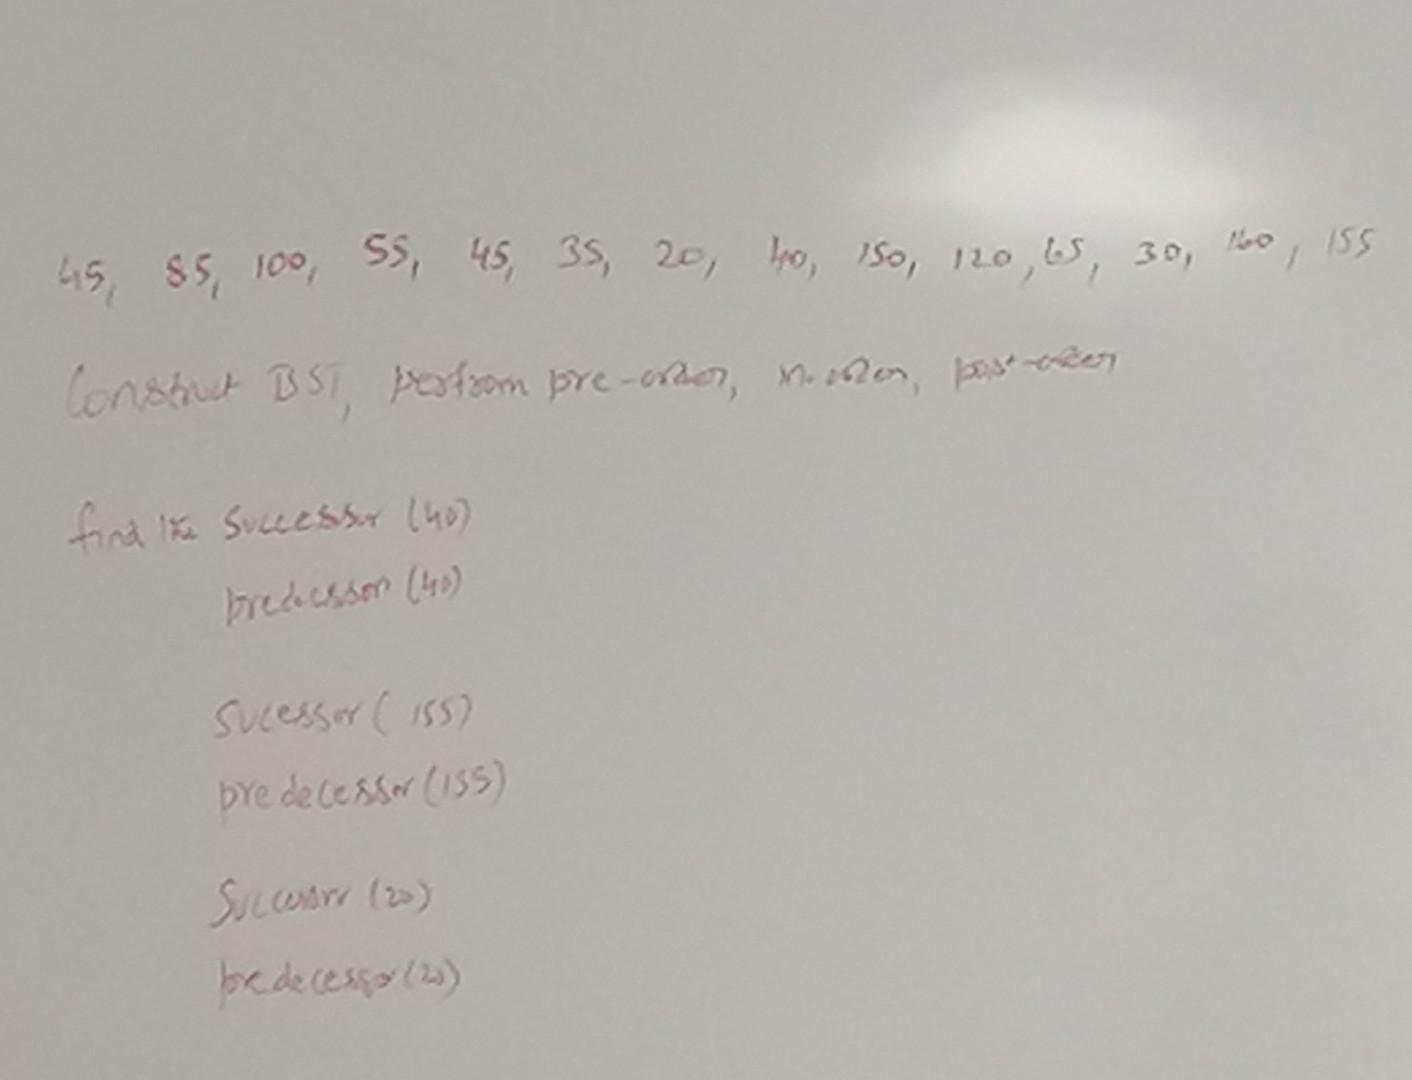 45, 85, 100, 55, 45, 35, 20, 40, 150, 120, 65, 30, 160, 155
Construct BST, perfrom pre-order, in-order, post-order
find the Successor (40)
predecessor (40)
Sucessor ( 155)
predecessor (155)
Successor (20)
predecessor (20)